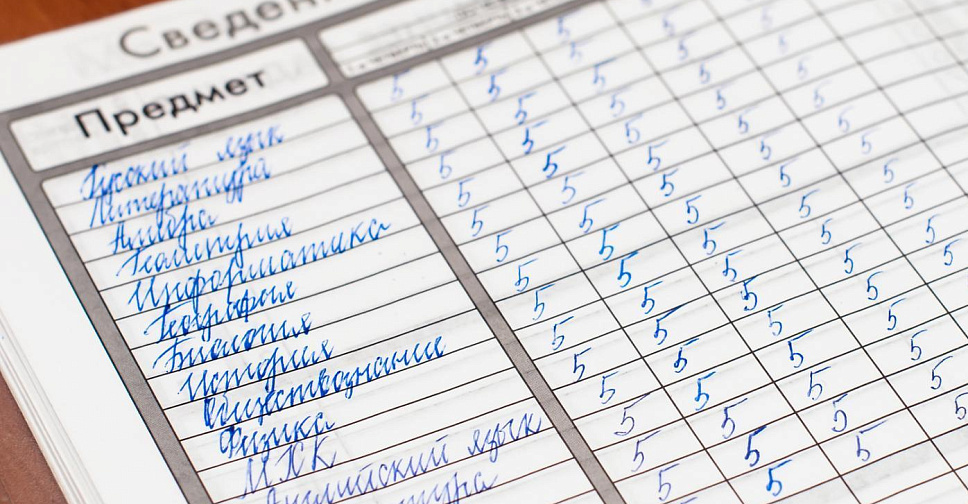 Сведен
Предмет
Русский язык 5 5 5 5
Литература 5 5 5 5
Алгебра 5 5 5 5
Геометрия 5 5 5 5 5
Информатика 5 5 5 5 5
География 5 5 5 5 5
Биология 5 5 5 5 5
История 5 5 5 5 5
Обществознание 5 5 5 5 5
Физика 5 5 5 5 5
МХК 5 5 5 5 5
Английский язык 5 5 5 5
5 5 5 5
5 5 5 5
5 5 5